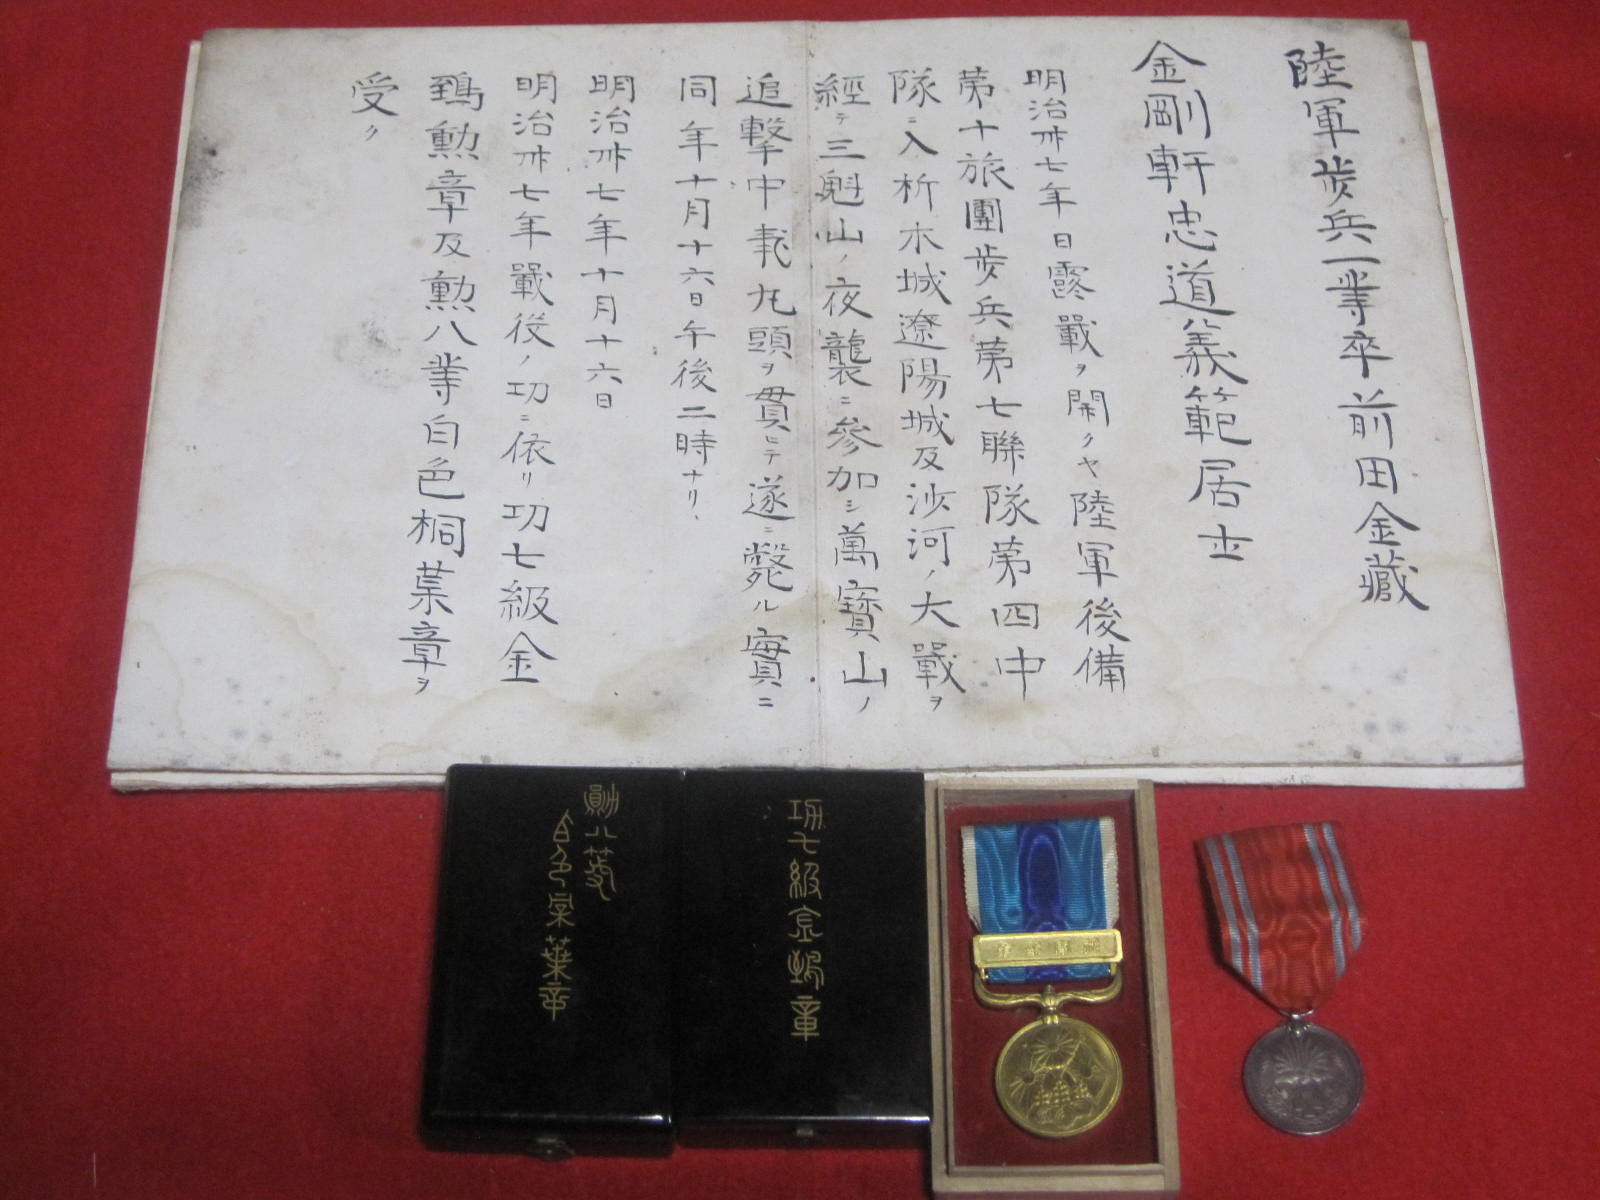 陸軍歩兵一等卒前田金藏
金剛軒忠道義範居士
明治丗七年日露戰ヲ開クヤ陸軍後備
第十旅團歩兵第七聯隊第四中
隊ニ入析木城遼陽城及沙河ノ大戰ヲ
經テ三魁山ノ夜襲ニ參加シ萬寶山ノ
追擊中敵丸頭ヲ貫ヒテ遂ニ斃ル實ニ
同年十月十六日午後二時ナリ、
明治丗七年十月十六日
明治丗七年戰役ノ功ニ依リ功七級金
鵄勲章及勲八等白色桐葉章ヲ
受ク
勲八等
白色桐葉章
功七級金鵄章